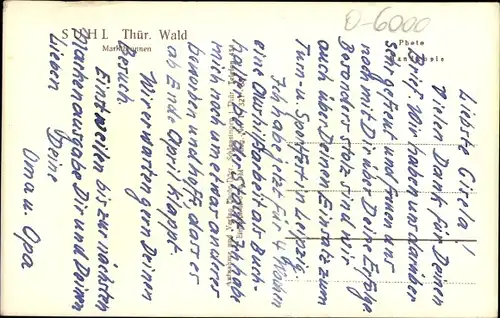 SUHL Thür. Wald
Marktbrunnen
O-6000
Photo
Liebste Gisela!
Vielen Dank für Deinen
Brief. Wir haben uns darüber
sehr gefreut und freuen uns
noch mit Dir über Deine Erfolge.
Besonders stolz sind wir
auch über Deinen Einsatz zum
Turn- u. Sportfest in Leipzig.
Ich habe jetzt für 4 Wochen
eine Aushilfsarbeit als Buch-
halter bei der Ich habe
mich noch um etwas anderes
beworben und hoffe, dass es
ab Ende April klappt.
Wir erwarten gern Deinen
Besuch.
Einstweilen bis zur nächsten
Markenausgabe Dir und Deinen
Lieben Deine
Oma u. Opa